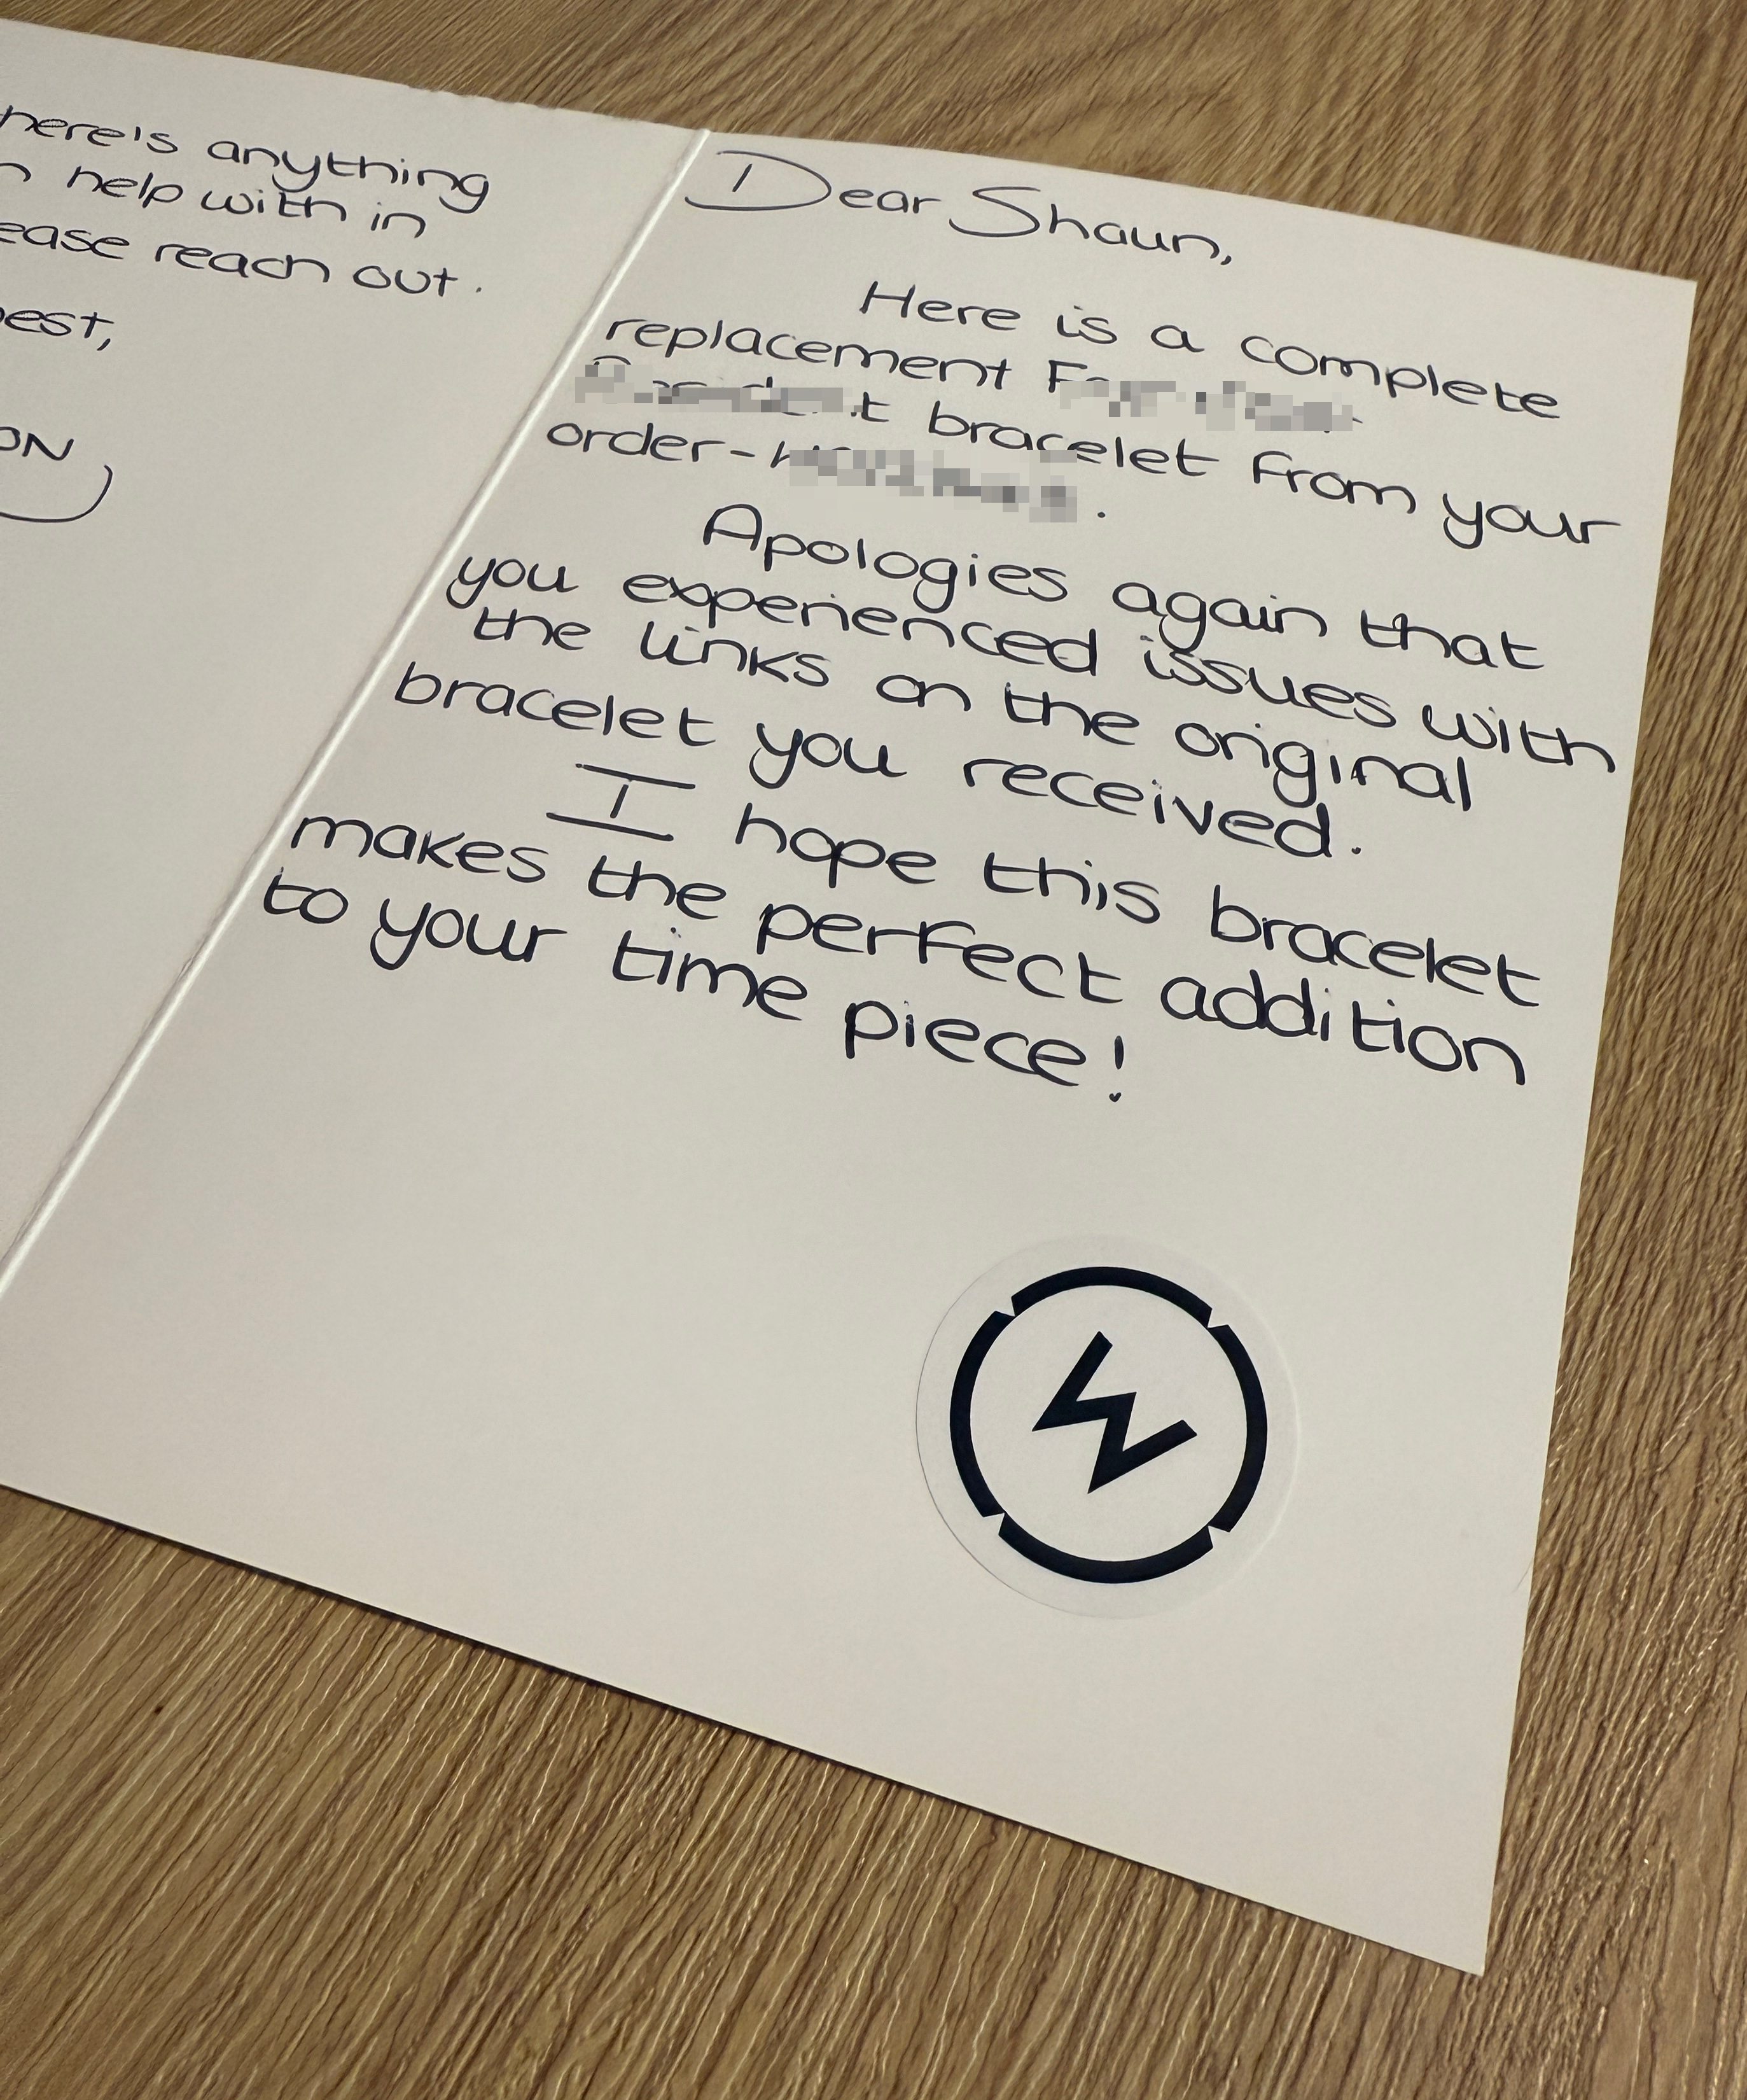 here's anything
help with in
ease reach out.
est,
ON
Dear Shaun,
Here is a complete
replacement
bracelet from your
order-
Apologies again that
you experienced issues with
the links on the original
bracelet you received.
I hope this bracelet
makes the perfect addition
to your time piece!
W